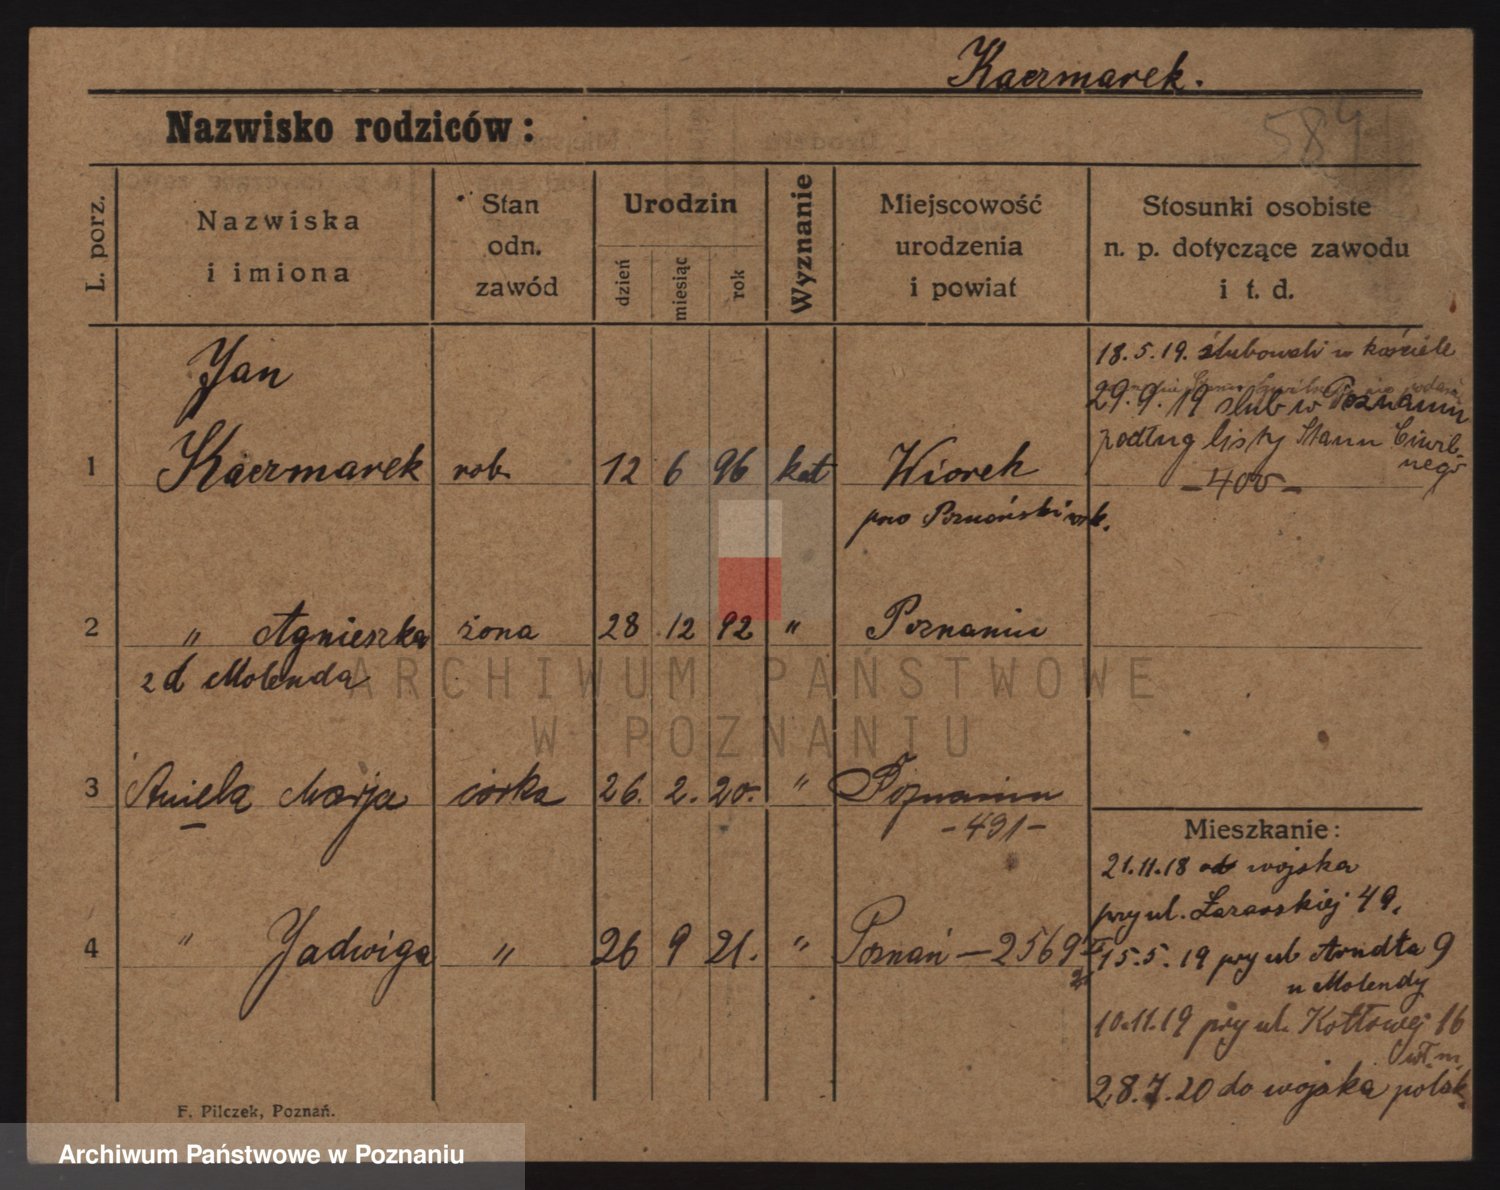 Kaczmarek.
Nazwisko rodziców:
584
L. porz.
Nazwiska
i imiona
Stan
odn.
zawód
Urodzin
dzień
miesiąc
rok
Wyznanie
Miejscowość
urodzenia
i powiat
Stosunki osobiste
n. p. dotyczące zawodu
i t. d.
1 Jan
Kaczmarek rob. 12 6 96 kat Wiorek
pow Poznański wsch.
18.5.19. ślubowali w kościele
29.9.19 ślub w Poznaniu
podług listy Stanu Ciwil-
nego
- 400 -
2 " Agnieszka żona 28 12 92 " Poznaniu
z d Molenda
3 Aniela Marja córka 26. 2. 20. " Poznaniu
- 491 -
4 " Jadwiga " 26 9 21. " Poznań - 2569
Mieszkanie:
21.11.18 od wojska
przy ul. Łazarskiej 49.
15.5.19 przy ul. Arndta 9
u Molendy
10.11.19 przy ul. Kotłowej 16
wł. m
28.7.20 do wojska polsk.
F. Pilczek, Poznań.
ARCHIWUM PAŃSTWOWE
W POZNANIU
Archiwum Państwowe w Poznaniu